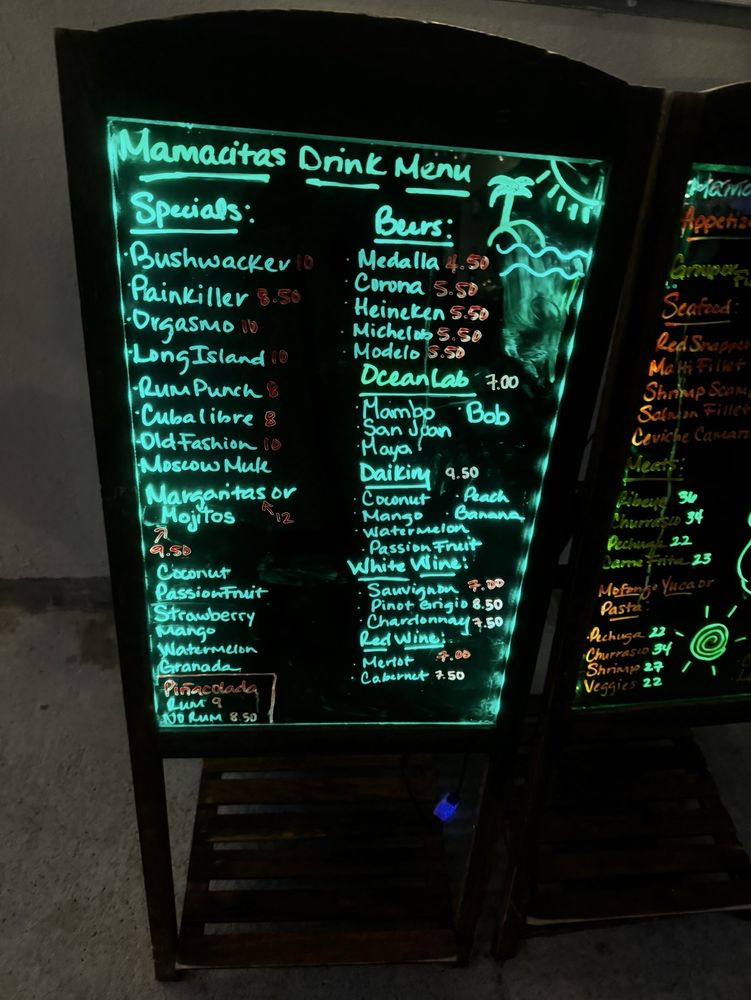 Mamacitas Drink Menu
Specials:
Bushwacker 10
Painkiller 8.50
Orgasmo 10
Long Island 10
Rum Punch 8
Cuba libre 8
Old Fashion 10
Moscow Mule
Margaritas or 12
Mojitos
9.50
Coconut
Passion Fruit
Strawberry
Mango
Watermelon
Granada
Piñacolada
Rum 9
No Rum 8.50
Beers:
Medalla 4.50
Corona 5.50
Heineken 5.50
Michelob 5.50
Modelo 5.50
Ocean Lab 7.00
Mambo Bob
San Juan
Maya
Daikiry 9.50
Coconut Peach
Mango Banana
Watermelon
Passion Fruit
White Wine:
Sauvignon 7.00
Pinot Grigio 8.50
Chardonnay 7.50
Red Wine:
Merlot 7.00
Cabernet 7.50
Appetiz
Grouper
Seafood:
Red Snapper
Mahi Fillet
Shrimp Scam
Salmon Fillet
Ceviche Camaro
Meats:
Ribeye 36
Churrasco 34
Pechuga 22
Carne Frita 23
Mofongo Yuca or
Pasta:
Pechuga 22
Churrasco 34
Shrimp 27
Veggies 22